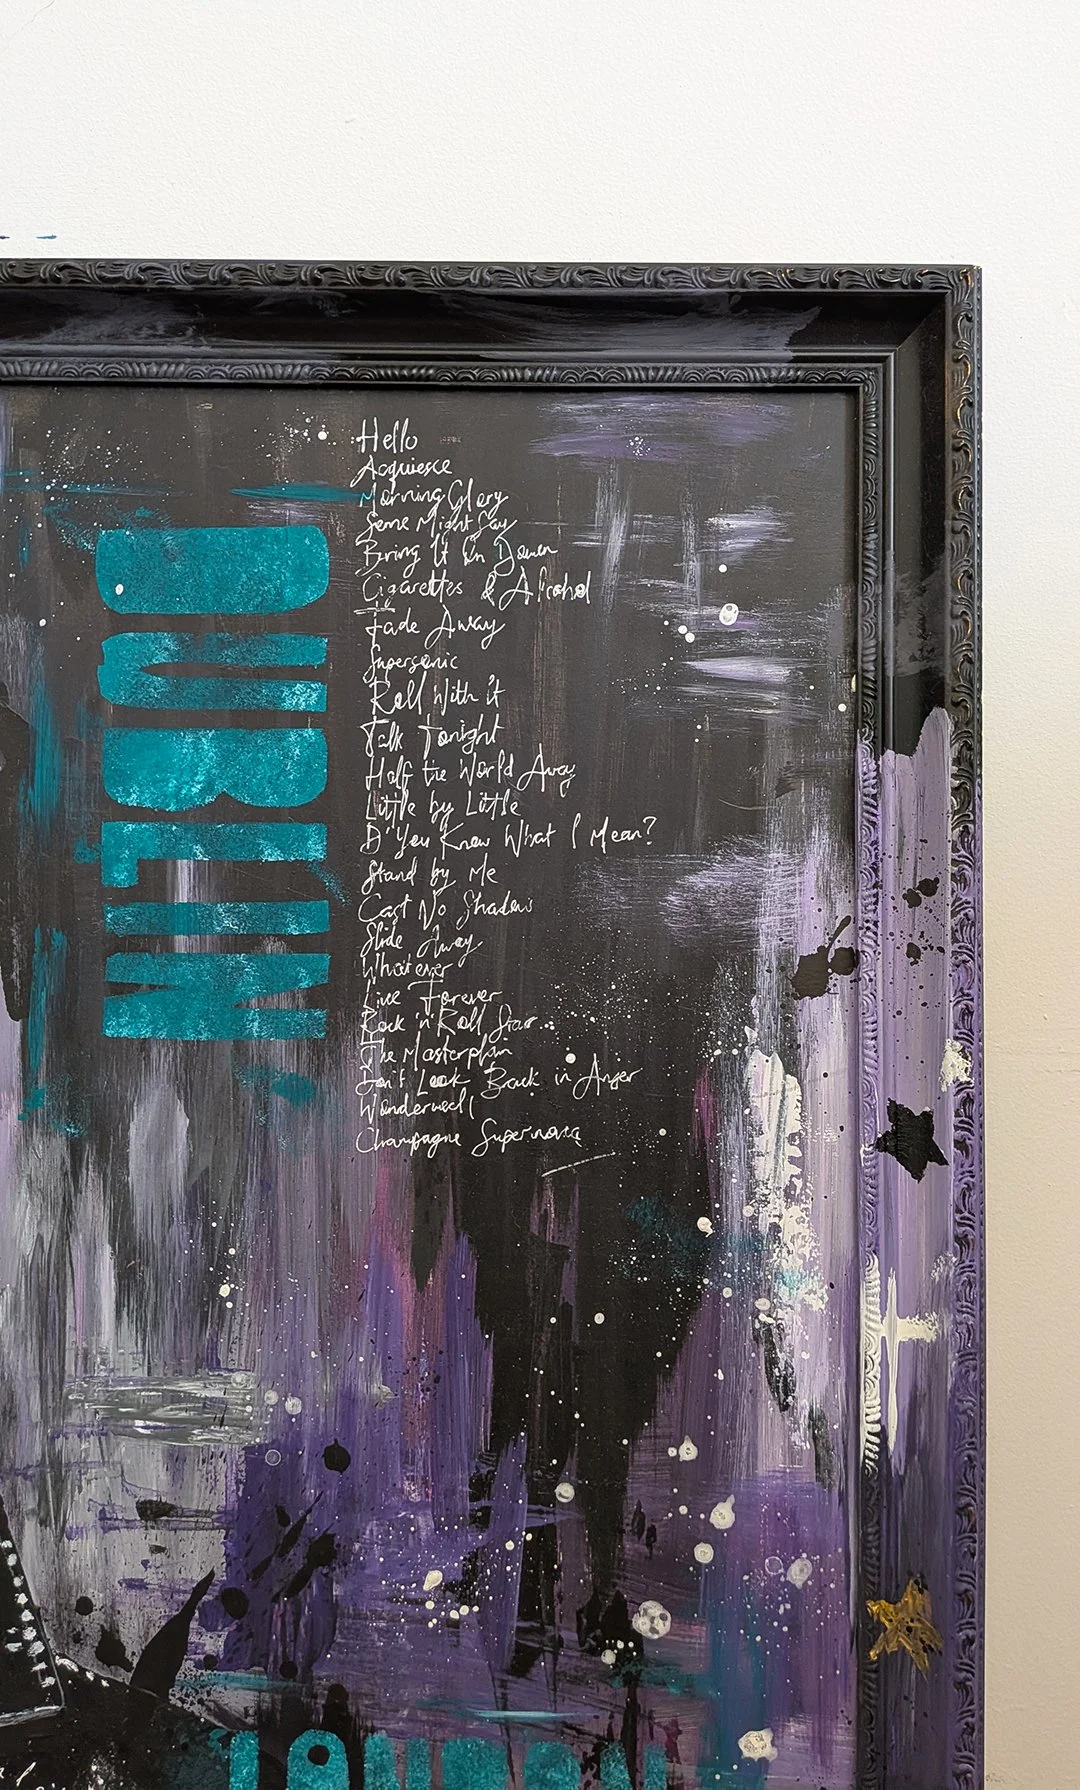 DUBLIN
Hello
Acquiesce
Morning Glory
Some Might Say
Bring It On Down
Cigarettes & Alcohol
Fade Away
Supersonic
Roll With it
Talk Tonight
Half the World Away
Little by Little
D'You Know What I Mean?
Stand by Me
Cast No Shadow
Slide Away
Whatever
Live Forever
Rock 'n' Roll Star
The Masterplan
Don't Look Back in Anger
Wonderwall
Champagne Supernova